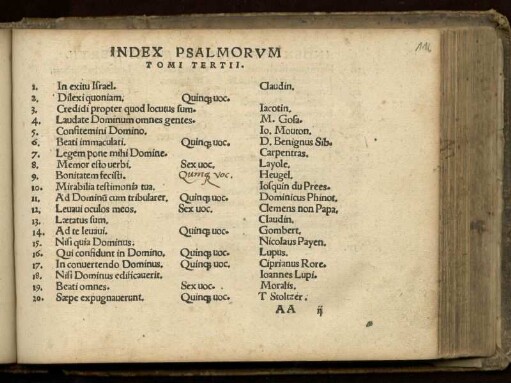 116
INDEX PSALMORVM
TOMI TERTII.
1. In exitu Israel. Claudin.
2. Dilexi quoniam. Quinq; uoc.
3. Credidi propter quod locutus sum. Iacotin.
4. Laudate Dominum omnes gentes. M. Gosa.
5. Confitemini Domino. Io. Mouton.
6. Beati immaculati. Quinq; uoc. D. Benignus Sib.
7. Legem pone mihi Domine. Carpentras.
8. Memor esto uerbi. Sex uoc. Layole.
9. Bonitatem fecisti. Quinq; voc. Heugel.
10. Mirabilia testimonia tua. Iosquin du Prees.
11. Ad Dominū cum tribularer. Quinq; uoc. Dominicus Phinot.
12. Leuaui oculos meos. Sex uoc. Clemens non Papa.
13. Lætatus sum. Claudin.
14. Ad te leuaui. Quinq; uoc. Gombert.
15. Nisi quia Dominus. Nicolaus Payen.
16. Qui confidunt in Domino. Quinq; uoc. Lupus.
17. In conuertendo Dominus. Quinq; uoc. Ciprianus Rore.
18. Nisi Dominus edificauerit. Ioannes Lupi.
19. Beati omnes. Sex uoc. Moralis.
20. Sæpe expugnauerunt. Quinq; uoc. T Stoltzer.
AA ij